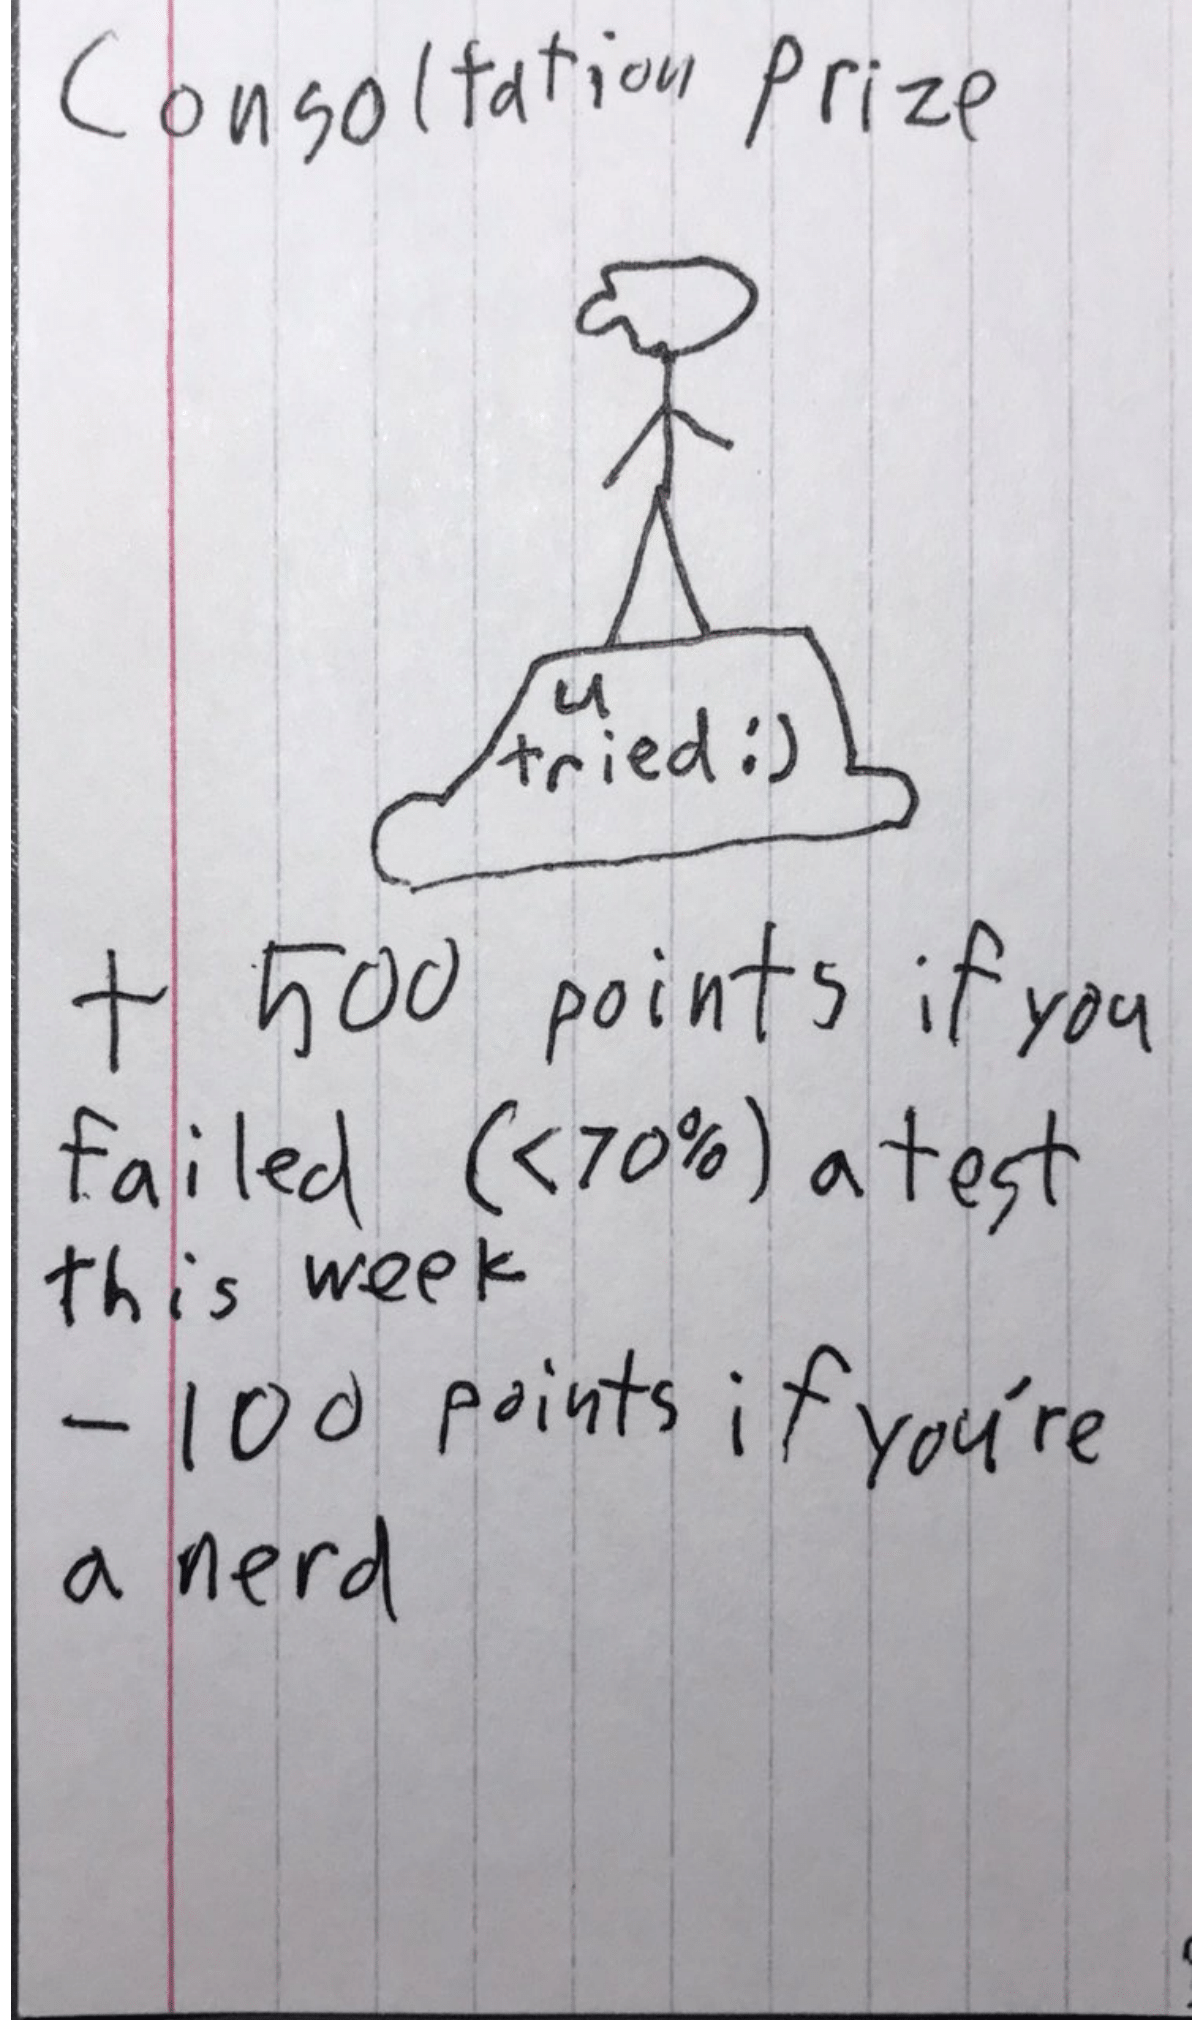 Consoltation Prize
u
tried :)
+ 500 points if you
failed (<70%) a test
this week
- 100 points if you're
a nerd